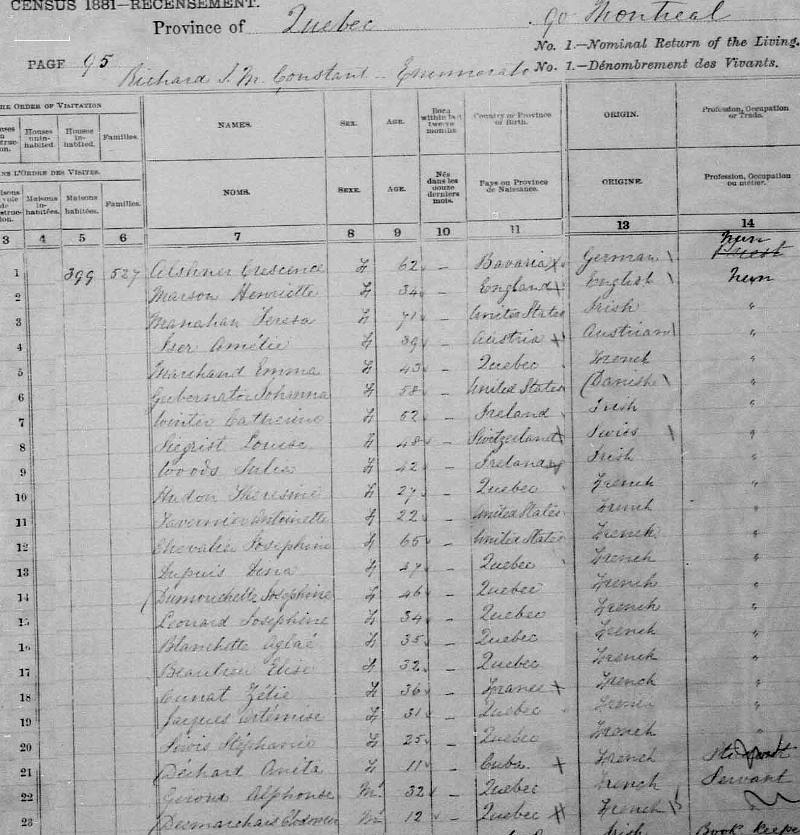 CENSUS 1881—RECENSEMENT.
Province of Quebec
90 Montreal
No. 1.—Nominal Return of the Living.
PAGE 95
Richard J. M. Constant - Enumerator
No. 1.—Dénombrement des Vivants.
ORDER OF VISITATION
Houses uninhabited. Houses inhabited. Families.
NAMES. SEX. AGE. Born within last twelve months. Country or Province of Birth. ORIGIN. Profession, Occupation or Trade.
L'ORDRE DES VISITES.
Maisons inhabitées. Maisons habitées. Familles.
NOMS. SEXE. AGE. Nés dans les douze derniers mois. Pays ou Province de Naissance. ORIGINE. Profession, Occupation ou métier.
3 4 5 6 7 8 9 10 11 13 14
1 399 527 Crescence F 62 – Bavaria x German nun
2 Marson Henriette F 34 – England English nun
3 Manahan Teresa F 71 – United States Irish "
4 Iser Amélie F 39 – Austria x Austrian "
5 Marchand Emma F 43 – Quebec French "
6 Gubernator Johanna F 58 – United States (Danish "
7 Winter Catherine F 52 – Ireland Irish "
8 Siegrist Louise F 48 – Switzerland x Swiss "
9 Woods Julia F 42 – Ireland Irish "
10 Hudon Theresine F 27 – Quebec French "
11 Tavernier Antoinette F 22 – United States French "
12 Chevalier Josephine F 65 – United States French "
13 Dupuis Dina F – Quebec French "
14 Dumouchette Josephine F 46 – Quebec French "
15 Leonard Josephine F 34 – Quebec French "
16 Blanchette Aglaé F 35 – Quebec French "
17 Beaulieu Elise F 32 – Quebec French "
18 Cunat Zélie F 36 – France x French "
19 Jacques Artémise F 31 – Quebec French "
20 Lewis Stéphanie F 25 – Quebec French "
21 Anita F 11 – Cuba x French
22 Giroux Alphonse M 32 – Quebec French Servant
23 Desmarchais M 12 – Quebec French
Irish Book keeper